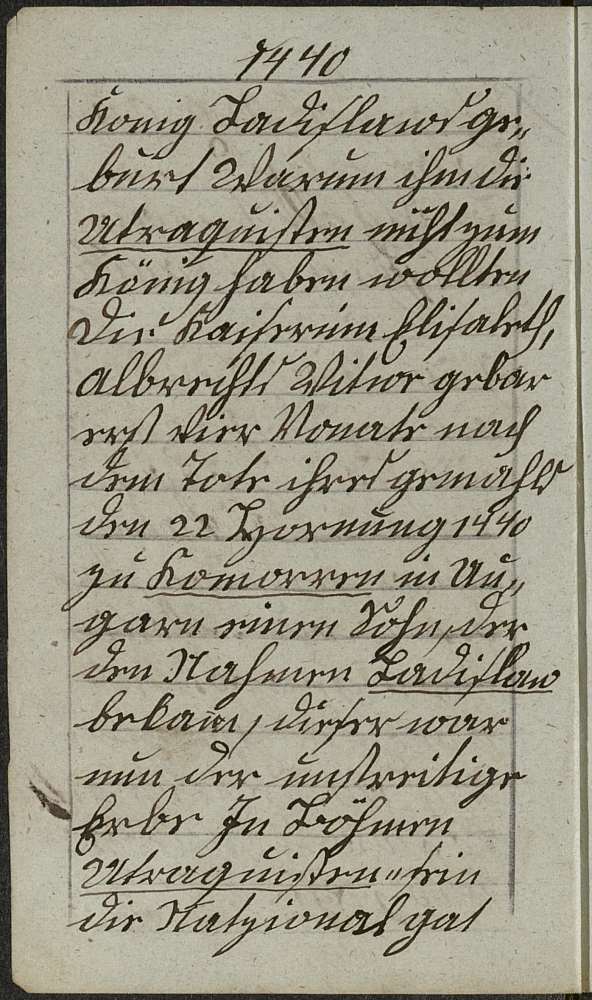 1440
König Ladislaws ge„
burt Warum ihn die
Utraquisten nicht zum
König haben wollten
Die Kaiserinn Elisabeth,
Albrechts Witwe gebar
erst vier Monate nach
dem Tote ihres gemahls
den 22 Hornung 1440
zu Komorren in Un„
garn einen Sohn, der
den Nahmen Ladislaw
bekam, dieser war
nun der unstreitige
Erbe In Böhmen
Utraquisten
die Natzional gat